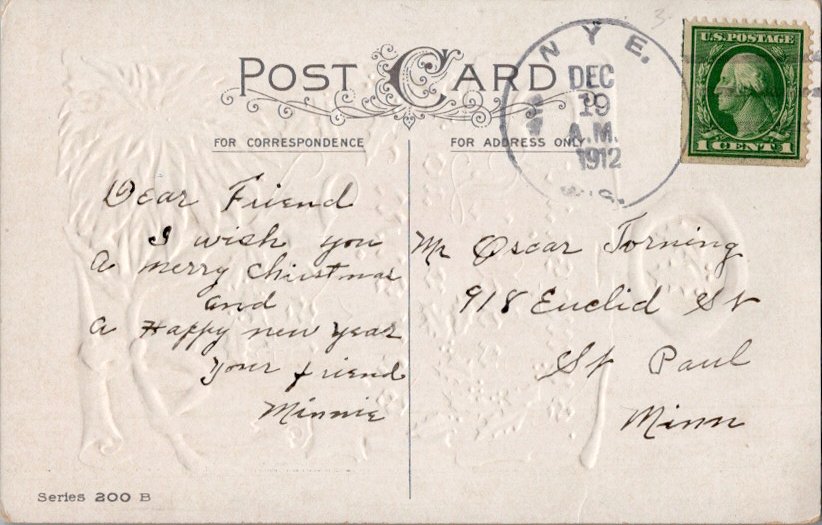 POST CARD
FOR CORRESPONDENCE
FOR ADDRESS ONLY
NYE.
DEC
19
A.M.
1912
WIS.
U.S. POSTAGE
1 CENT 1
Dear Friend
I wish you
a merry christmas
and
a Happy new year
your friend
Minnie
Mr Oscar Torning
918 Euclid St
St Paul
Minn
Series 200 B